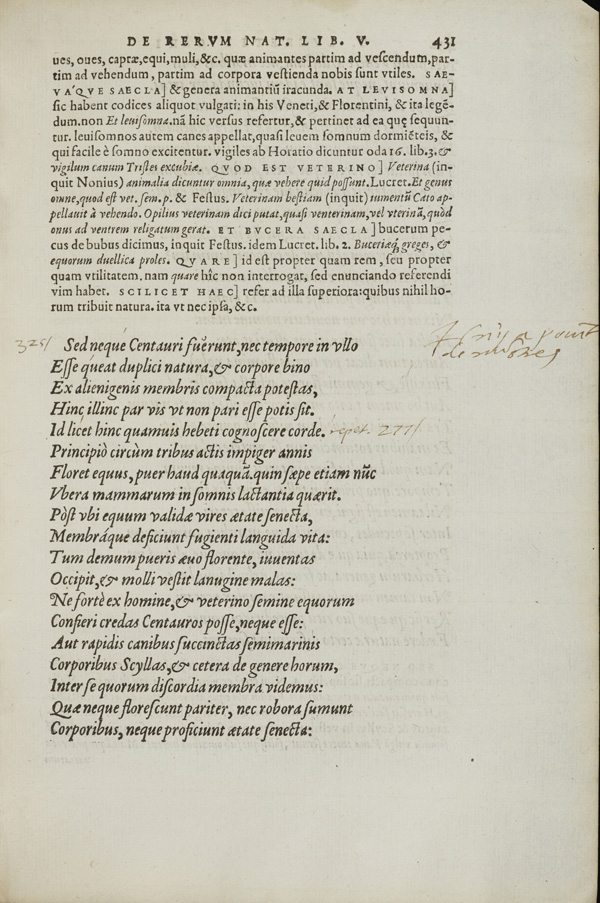 DE RERVM NAT. LIB. V. 431
ues, oues, capræ, equi, muli, &c. quæ animantes partim ad vescendum, par-
tim ad vehendum, partim ad corpora vestienda nobis sunt vtiles. SAE-
VA'QVE SAECLA] & genera animantiū iracunda. AT LEVISOMNA]
sic habent codices aliquot vulgati: in his Veneti, & Florentini, & ita legē-
dum. non Et leuisomna. nā hic versus refertur, & pertinet ad ea quę sequun-
tur. leuisomnos autem canes appellat, quasi leuem somnum dormiēteis, &
qui facile è somno excitentur. vigiles ab Horatio dicuntur oda 16. lib. 3. &
vigilum canum Tristes excubiæ. QVOD EST VETERINO] Veterina (in-
quit Nonius) animalia dicuntur omnia, quæ vehere quid possunt. Lucret. Et genus
omne, quod est vet. sem. p. & Festus. Veterinam bestiam (inquit) iumentū Cato ap-
pellauit à vehendo. Opilius veterinam dici putat, quasi venterinam, vel vterinā, quòd
onus ad ventrem religatum gerat. ET BVCERA SAECLA] bucerum pe-
cus de bubus dicimus, inquit Festus. idem Lucret. lib. 2. Buceriæq́; greges, &
equorum duellica proles. QVARE] id est propter quam rem, seu propter
quam vtilitatem. nam quare hîc non interrogat, sed enunciando referendi
vim habet. SCILICET HAEC] refer ad illa superiora: quibus nihil ho-
rum tribuit natura. ita vt nec ipsa, &c.
325/ Sed neque Centauri fuerunt, nec tempore in vllo
Esse queat duplici natura, & corpore bino
Ex alienigenis membris compacta potestas,
Hinc illinc par vis vt non pari esse potis sit.
Id licet hinc quamuis hebeti cognoscere corde. repet. 277/
Principiò circùm tribus actis impiger annis
Floret equus, puer haud quaquā. quin sæpe etiam nūc
Vbera mammarum in somnis lactantia quærit.
Pòst vbi equum validæ vires ætate senecta,
Membráque deficiunt fugienti languida vita:
Tum demum pueris æuo florente, iuuentas
Occipit, & molli vestit lanugine malas:
Ne fortè ex homine, & veterino semine equorum
Confieri credas Centauros posse, neque esse:
Aut rapidis canibus succinctas semimarinis
Corporibus Scyllas, & cetera de genere horum,
Inter se quorum discordia membra videmus:
Quæ neque florescunt pariter, nec robora sumunt
Corporibus, neque proficiunt ætate senecta:
Il n'y a point
de